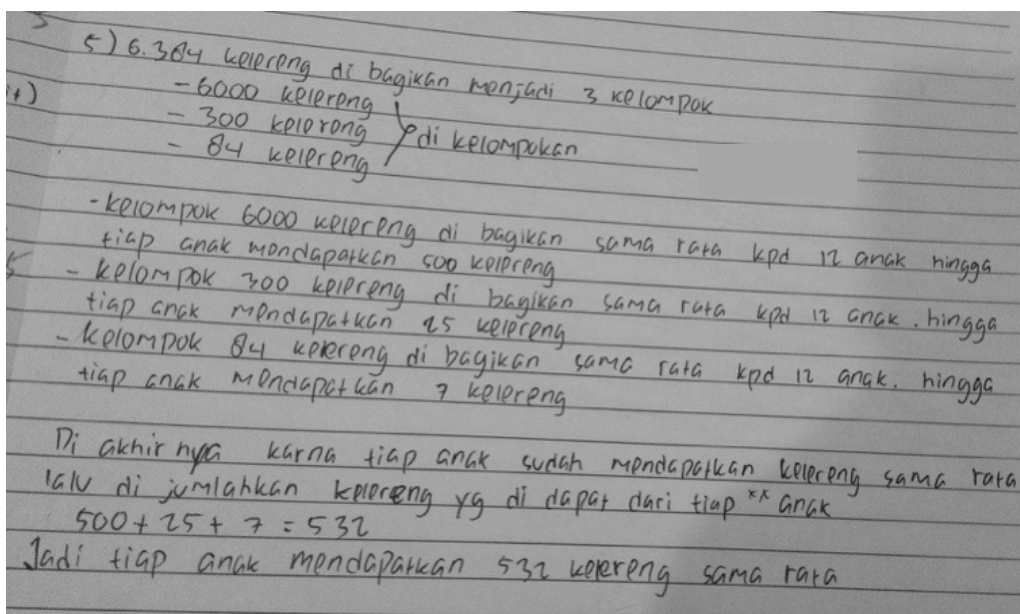 5) 6.384 kelereng di bagikan menjadi 3 kelompok
- 6000 kelereng
- 300 kelereng
- 84 kelereng
di kelompokan
- kelompok 6000 kelereng di bagikan sama rata kpd 12 anak hingga
tiap anak mendapatkan 500 kelereng
- kelompok 300 kelereng di bagikan sama rata kpd 12 anak. hingga
tiap anak mendapatkan 25 kelereng
- kelompok 84 kelereng di bagikan sama rata kpd 12 anak. hingga
tiap anak mendapatkan 7 kelereng
Di akhir nya karna tiap anak sudah mendapatkan kelereng sama rata
lalu di jumlahkan kelereng yg di dapat dari tiap xx anak
500 + 25 + 7 = 532
Jadi tiap anak mendapatkan 532 kelereng sama rata